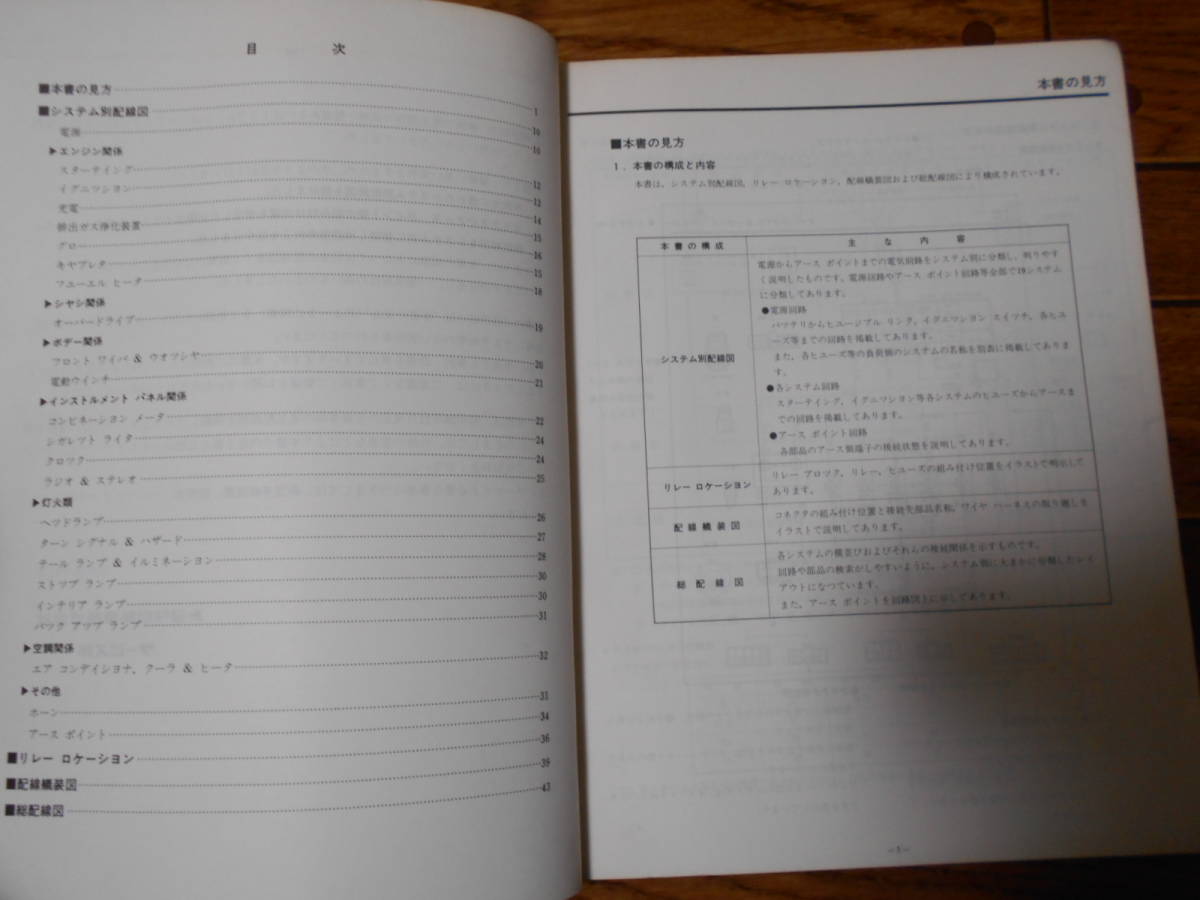 目 次
■本書の見方 1
■システム別配線図 10
電源 10
▶エンジン関係
スターテイング 12
イグニツシヨン 12
充電 14
排出ガス浄化装置 15
グロー 16
キヤブレタ 15
フユーエル ヒータ 18
▶シヤシ関係
オーバードライブ 19
▶ボデー関係
フロント ワイパ & ウオツシヤ 20
電動ウインチ 21
▶インストルメント パネル関係
コンビネーシヨン メータ 22
シガレツト ライタ 24
クロツク 24
ラジオ & ステレオ 25
▶灯火類
ヘツドランプ 26
ターン シグナル & ハザード 27
テール ランプ & イルミネーシヨン 28
ストツプ ランプ 30
インテリア ランプ 30
バツク アツプ ランプ 31
▶空調関係
エア コンデイシヨナ，クーラ & ヒータ 32
▶その他
ホーン 31
アース ポイント 34
■リレー ロケーシヨン 36
■配線艤装図 39
■総配線図 47
本書の見方
■本書の見方
1．本書の構成と内容
本書は，システム別配線図，リレー ロケーシヨン，配線艤装図および総配線図により構成されています。
本書の構成
主な内容
システム別配線図
電源からアース ポイントまでの電気回路をシステム別に分類し，判りやす
く説明したものです。電源回路やアース ポイント回路等全部で19システム
に分類してあります。
●電源回路
バツテリからヒユージブル リンク，イグニツシヨン スイツチ，各ヒユ
ーズ等までの回路を掲載してあります。
また，各ヒユーズ等の負荷側のシステムの名称を別表に掲載してありま
す。
●各システム回路
スターテイング，イグニツシヨン等各システムのヒユーズからアースま
での回路を掲載してあります。
●アース ポイント回路
各部品のアース側端子の接続状態を説明してあります。
リレー ロケーシヨン
リレー ブロツク，リレー，ヒユーズの組み付け位置をイラストで明示して
あります。
配線艤装図
コネクタの組み付け位置と接続先部品名称，ワイヤ ハーネスの取り廻しを
イラストで説明してあります。
総配線図
各システムの横並びおよびそれらの接続関係を示すものです。
回路や部品の検索がしやすいように，システム別に大まかに分類したレイ
アウトになつています。
また，アース ポイントを回路図上に示してあります。
—1—